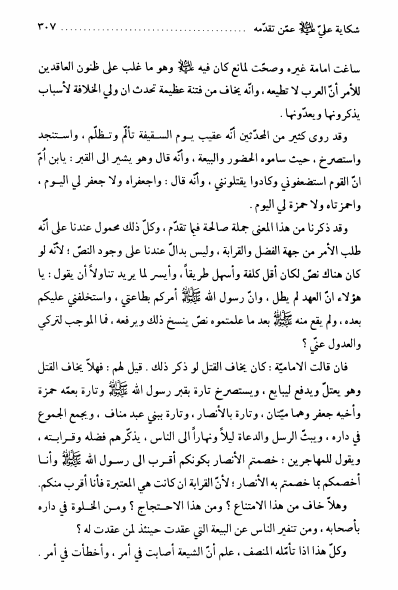 شكاية عليّ ﷺ عمّن تقدّمه ........................................ ٣٠٧
ساغت امامة غيره وصحّت لمانع كان فيه ﷺ وهو ما غلب على ظنون العاقدين
للأمر أنّ العرب لا تطيعه ، وانّه يخاف من فتنة عظيمة تحدث ان ولي الخلافة لأسباب
يذكرونها ويعدّونها .
وقد روى كثير من المحدّثين أنّه عقيب يوم السقيفة تألّم وتظلّم ، واستنجد
واستصرخ ، حيث ساموه الحضور والبيعة ، وأنّه قال وهو يشير الى القبر : يابن اُمّ
انّ القوم استضعفوني وكادوا يقتلونني ، وأنّه قال : واجعفراه ولا جعفر لي اليوم ،
واحمزتاه ولا حمزة لي اليوم .
وقد ذكرنا من هذا المعنى جملة صالحة فيما تقدّم ، وكلّ ذلك محمول عندنا على أنّه
طلب الأمر من جهة الفضل والقرابة ، وليس بدالّ عندنا على وجود النصّ ؛ لأنه لو
كان هناك نصّ لكان أقل كلفة وأسهل طريقاً ، وأيسر لما يريد تناولاً أن يقول : يا
هؤلاء انّ العهد لم يطل ، وانّ رسول الله ﷺ أمركم بطاعتي ، واستخلفني عليكم
بعده ، ولم يقع منه ﷺ بعد ما علمتموه نصّ ينسخ ذلك ويرفعه ، فما الموجب لتركي
والعدول عنّي ؟
فان قالت الاماميّة : كان يخاف القتل لو ذكر ذلك . قيل لهم : فهلّا يخاف القتل
وهو يعتلّ ويدفع ليبايع ، ويستصرخ تارة بقبر رسول الله ﷺ وتارة بعمّه حمزة
وأخيه جعفر وهما ميّتان ، وتارة بالأنصار ، وتارة ببني عبد مناف ، ويجمع الجموع
في داره ، ويبثّ الرسل والدعاة ليلاً ونهاراً الى الناس ، يذكّرهم فضله وقرابته ،
ويقول للمهاجرين : خصمتم الأنصار بكونكم أقرب الى رسول الله ﷺ وأنا
أخصمكم بما خصمتم به الأنصار ؛ لأنّ القرابة ان كانت هي المعتبرة فأنا أقرب منكم.
وهلّا خاف من هذا الامتناع ؟ ومن هذا الاحتجاج ؟ ومن الخلوة في داره
بأصحابه ، ومن تنفير الناس عن البيعة التي عقدت حينئذ لمن عقدت له ؟
وكلّ هذا اذا تأمّله المنصف ، علم أنّ الشيعة أصابت في أمر ، وأخطأت في أمر .